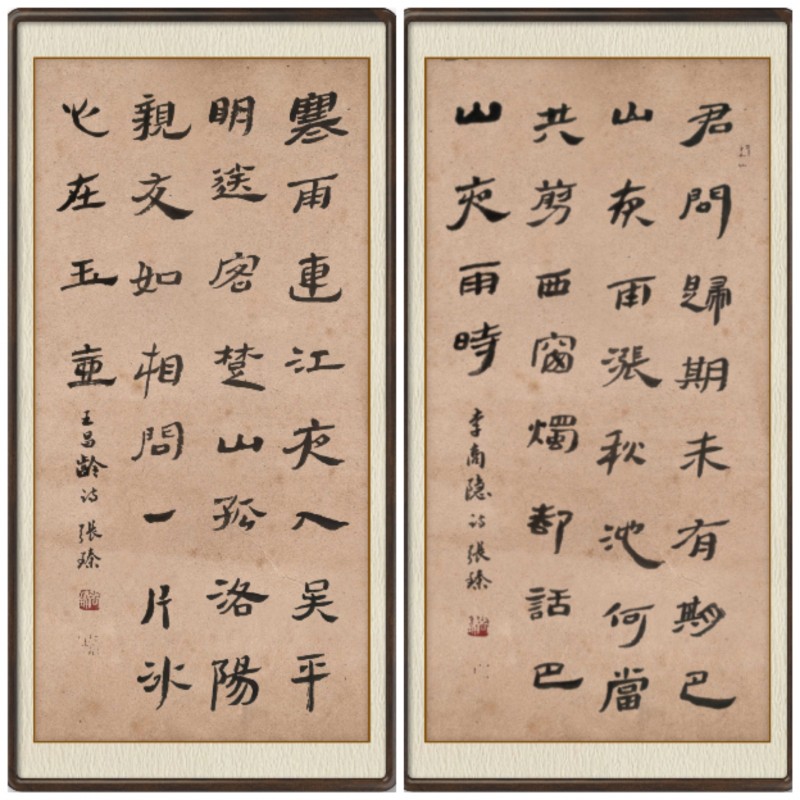 寒雨連江夜入吴平
明送客楚山孤洛陽
親友如相問一片冰
心在玉壺
王昌龄诗 張臻
君問歸期未有期巴
山夜雨漲秋池何當
共剪西窗燭卻話巴
山夜雨時
李商隐诗 張臻